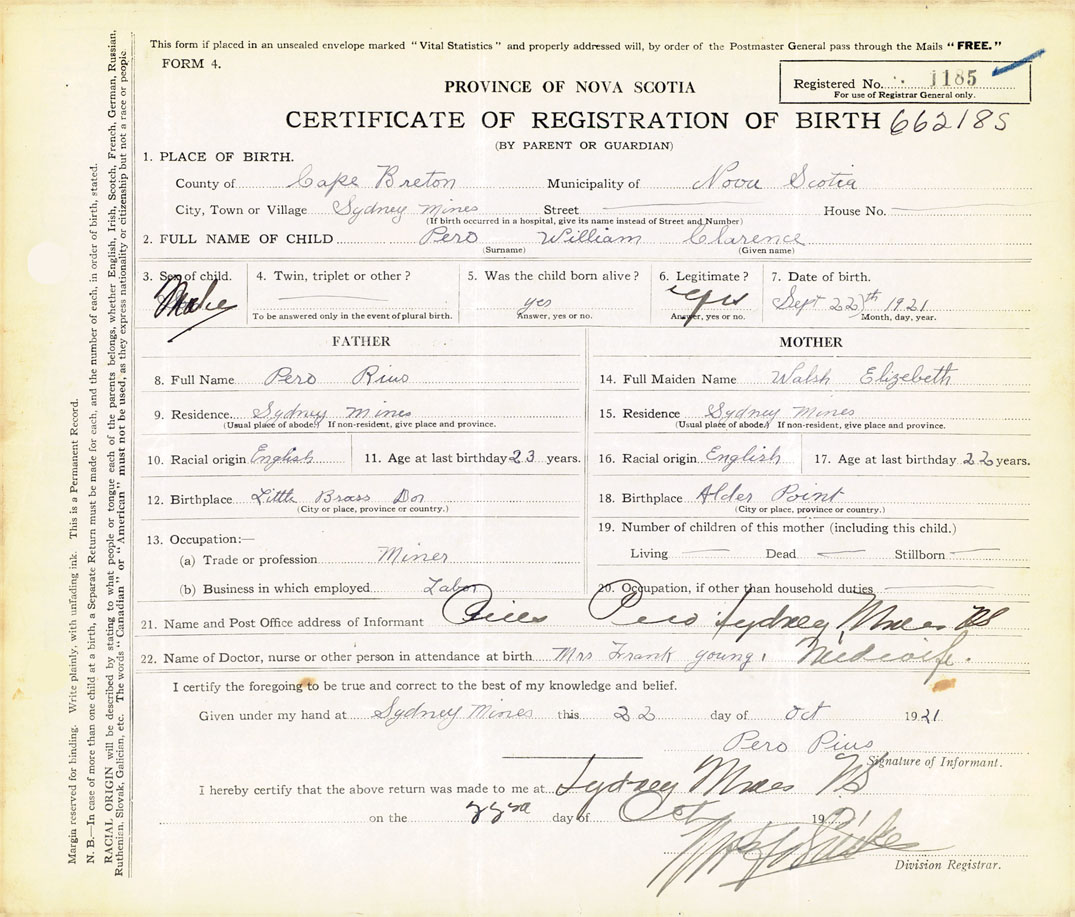 This form if placed in an unsealed envelope marked "Vital Statistics" and properly addressed will, by order of the Postmaster General pass through the Mails "FREE."
FORM 4.
Registered No. 1185
For use of Registrar General only.
PROVINCE OF NOVA SCOTIA
CERTIFICATE OF REGISTRATION OF BIRTH 662185
(BY PARENT OR GUARDIAN)
1. PLACE OF BIRTH.
County of Cape Breton Municipality of Nova Scotia
City, Town or Village Sydney Mines Street House No.
(If birth occurred in a hospital, give its name instead of Street and Number)
2. FULL NAME OF CHILD Pero William Clarence
(Surname) (Given name)
3. Sex of child. 4. Twin, triplet or other? 5. Was the child born alive? 6. Legitimate? 7. Date of birth.
Male yes yes Sept 22th 1921
To be answered only in the event of plural birth. Answer, yes or no. Answer, yes or no. Month, day, year.
FATHER MOTHER
8. Full Name Pero Pius 14. Full Maiden Name Walsh Elizebeth
9. Residence Sydney Mines 15. Residence Sydney Mines
(Usual place of abode.) If non-resident, give place and province. (Usual place of abode.) If non-resident, give place and province.
10. Racial origin English 11. Age at last birthday 23 years. 16. Racial origin English 17. Age at last birthday 22 years.
12. Birthplace Little Brass Dor 18. Birthplace Alder Point
(City or place, province or country.) (City or place, province or country.)
19. Number of children of this mother (including this child.)
13. Occupation:—
(a) Trade or profession Miner Living Dead Stillborn
(b) Business in which employed Labor 20. Occupation, if other than household duties
21. Name and Post Office address of Informant Pero Sydney Mines NS
22. Name of Doctor, nurse or other person in attendance at birth Mrs Frank young, Midwife.
I certify the foregoing to be true and correct to the best of my knowledge and belief.
Given under my hand at Sydney Mines this 22 day of Oct 1921
Pero Pius
Signature of Informant.
I hereby certify that the above return was made to me at Sydney Mines NS
on the 22nd day of Oct 1921
Division Registrar.
Margin reserved for binding. Write plainly, with unfading ink. This is a Permanent Record.
N. B.—In case of more than one child at a birth, a Separate Return must be made for each, and the number of each, in order of birth, stated.
RACIAL ORIGIN will be described by stating to what people or tongue each of the parents belongs, whether English, Irish, Scotch, French, German, Russian,
Ruthenian, Slovak, Galician, etc. The words "Canadian" or "American" must not be used, as they express nationality or citizenship but not a race or people